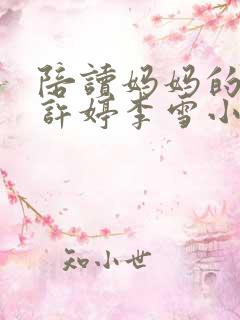 陪讀妈妈的
許婷李雪小
知小世